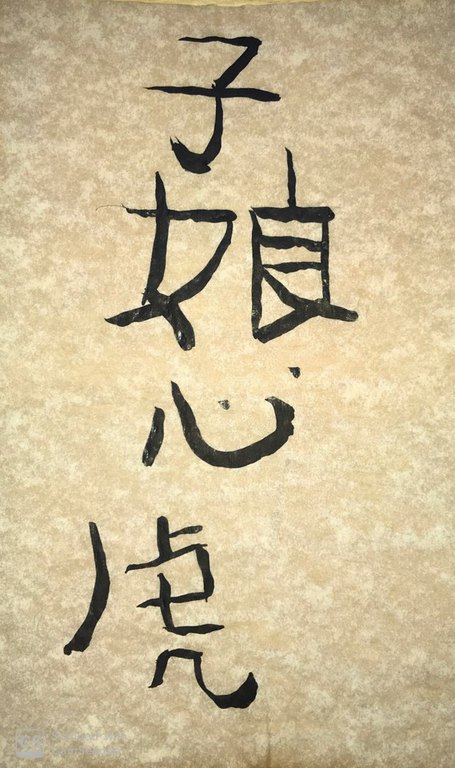 子娘心虎